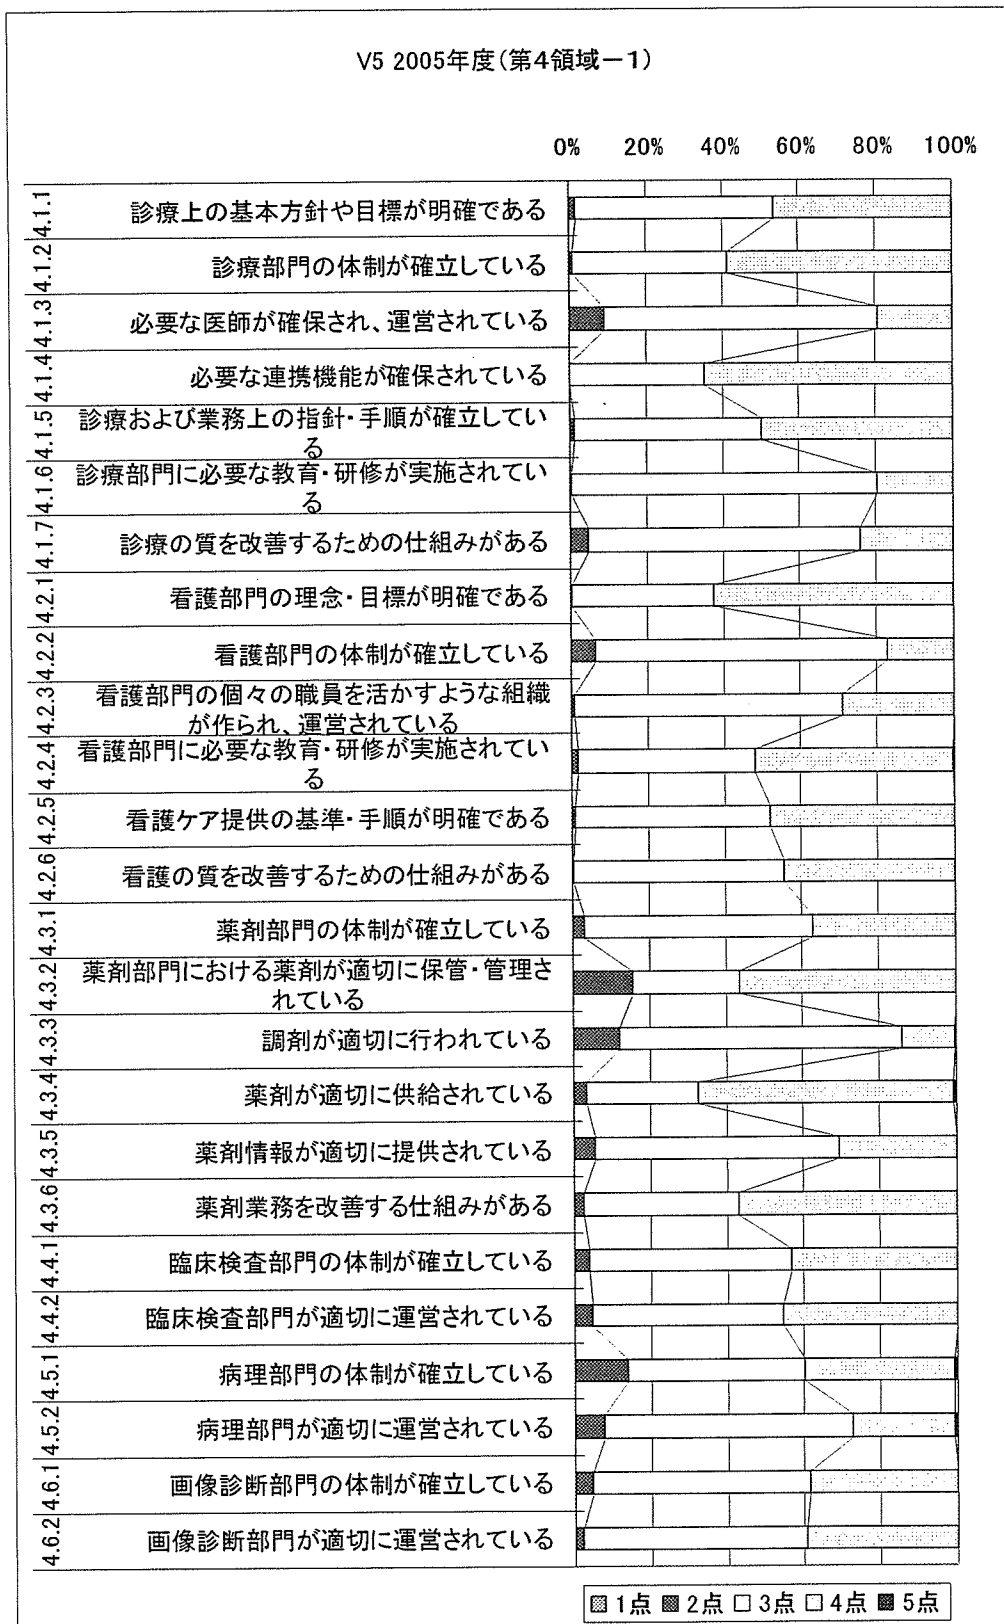 V5 2005年度(第4領域－1)
0% 20% 40% 60% 80% 100%
4.1.1 診療上の基本方針や目標が明確である
4.1.2 診療部門の体制が確立している
4.1.3 必要な医師が確保され、運営されている
4.1.4 必要な連携機能が確保されている
4.1.5 診療および業務上の指針・手順が確立してい
る
4.1.6 診療部門に必要な教育・研修が実施されてい
る
4.1.7 診療の質を改善するための仕組みがある
4.2.1 看護部門の理念・目標が明確である
4.2.2 看護部門の体制が確立している
4.2.3 看護部門の個々の職員を活かすような組織
が作られ、運営されている
4.2.4 看護部門に必要な教育・研修が実施されてい
る
4.2.5 看護ケア提供の基準・手順が明確である
4.2.6 看護の質を改善するための仕組みがある
4.3.1 薬剤部門の体制が確立している
4.3.2 薬剤部門における薬剤が適切に保管・管理さ
れている
4.3.3 調剤が適切に行われている
4.3.4 薬剤が適切に供給されている
4.3.5 薬剤情報が適切に提供されている
4.3.6 薬剤業務を改善する仕組みがある
4.4.1 臨床検査部門の体制が確立している
4.4.2 臨床検査部門が適切に運営されている
4.5.1 病理部門の体制が確立している
4.5.2 病理部門が適切に運営されている
4.6.1 画像診断部門の体制が確立している
4.6.2 画像診断部門が適切に運営されている
1点 2点 3点 4点 5点